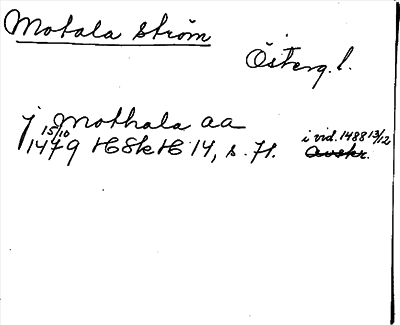 Motala ström
Österg. l.
j Mothala aa
15/10 1479 HSkH 14, s. 71. i vid. 1488 13/12
Avskr.